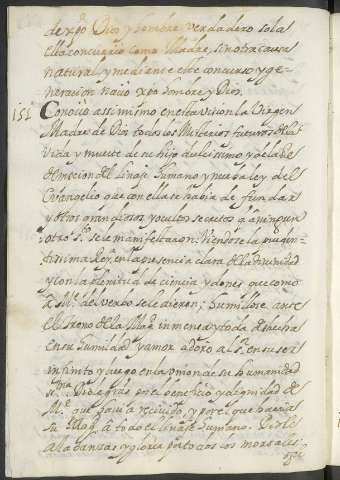 de xpo Dios y hombre verdadero sola
ella concurrio como Madre, sin otra causa
natural, y mediante este concurso y ge-
neracion nacio xpo hombre y Dios.
155 Conocio assimismo en esta vision la Virgen
Madre de Dios todos los Misterios futuros de la
Vida y muerte de su hijo dulcissimo y de la Re
dempcion del Linaje humano y nueva ley del
Evangelio que con ella se havia de fundar
y otros grandiosos y ocultos secretos q a ninguno
otro Sto se le manifestaron. Viendose la pruden-
tissima Reyna en la presencia clara de la divinidad
y con la plenitud de ciencia y dones que como
a Me del verbo se le dieron; humillose ante
el throno de la Magd inmensa y toda deshecha
en su humildad y amor adoro al Sr en su ser
infinito y luego en la union de la humanidad
sma. Diole gras por el beneficio y dignidad de
Me que havia recivido, y por el que hacia
su Magd a todo el linaje humano. Diole
alabanzas y gloria por todos los mortales